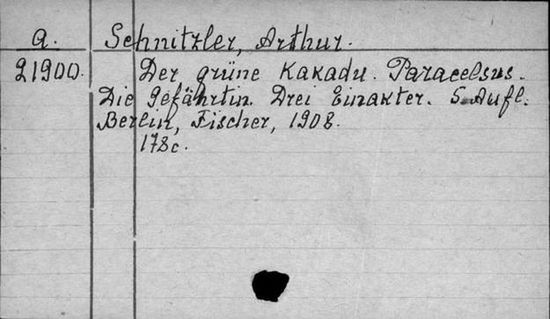 a. Schnitzler, Arthur.
21900. Der grüne Kakadu. Paracelsus.
Die Gefährtin. Drei Einakter. 5. Aufl.
Berlin, Fischer, 1908.
178c.